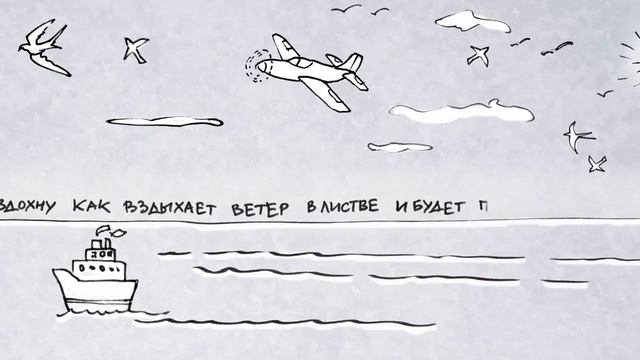 ЗДОХНУ КАК ВЗДЫХАЕТ ВЕТЕР В ЛИСТВЕ И БУДЕТ П